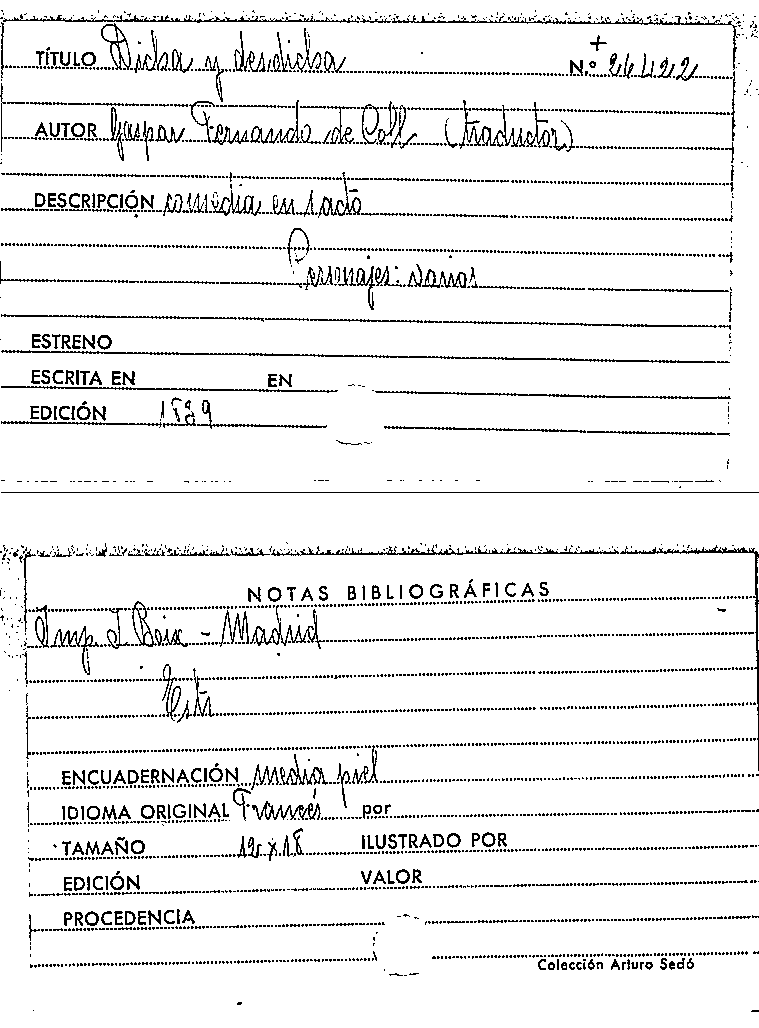 TÍTULO Dicha y desdicha
+
N.º 26422
AUTOR Gaspar Fernando de Coll (traductor)
DESCRIPCIÓN comedia en 1 acto
Personajes: varios
ESTRENO
ESCRITA EN EN
EDICIÓN 1839
NOTAS BIBLIOGRÁFICAS
Imp. I. Boix - Madrid
ENCUADERNACIÓN media piel
IDIOMA ORIGINAL Francés por
TAMAÑO ILUSTRADO POR
EDICIÓN VALOR
PROCEDENCIA
Colección Arturo Sedó